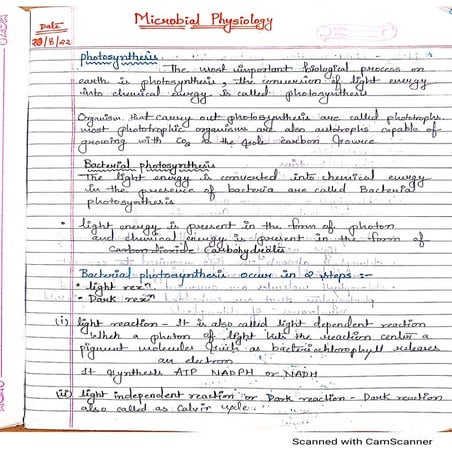 Microbial Physiology
Date
30/8/22
photosynthesis
The most important biological process on
earth is photosynthesis, the conversion of light energy
into chemical energy is called photosynthesis
Organism that carry out photosynthesis are called phototrophs
most phototrophic organisms are also autotrophs capable of
growing with CO2 as the sole carbon source
Bacterial photosynthesis
The light energy is converted into chemical energy
in the presence of bacteria are called Bacteria
photosynthesis
• light energy is present in the form of photon
and chemical energy is present in the form of
Carbohydrates
Bacterial photosynthesis occur in 2 steps :-
• light rexn
• Dark rexn
(i) light reaction - It is also called light dependent reaction
When a photon of light hits the reaction center a
pigment molecules such as bacteriochlorophyll releases
an electron
It synthesis ATP NADPH or NADH
(ii) light independent reaction or Dark reaction - Dark reaction
also called as Calvin cycle.
Scanned with CamScanner